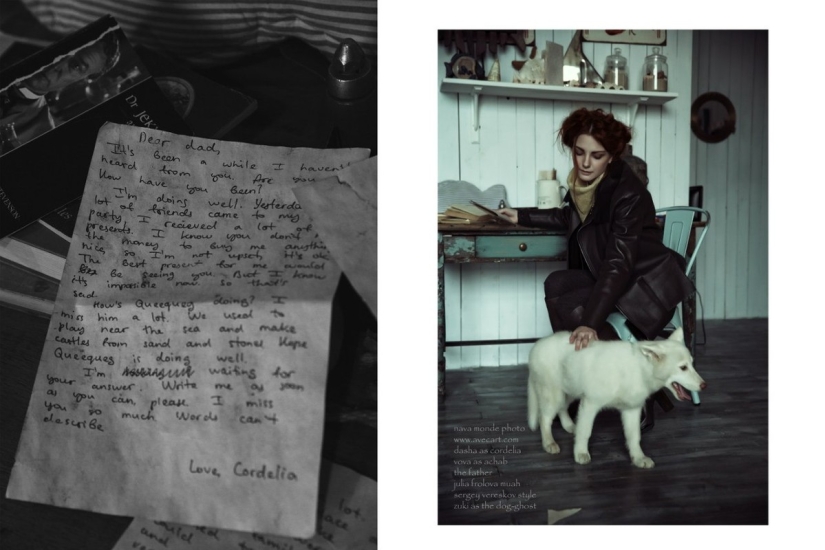 Dr Jek
Dear dad,
It's been a while I haven't
heard from you. Are you
How have you been?
I'm doing well. Yesterda
lot of friends came to my
party. I recieved a lot of
presents. I know you don't
the money to buy me anythin
nice, so I'm not upset, it's ok
The best present for me would
be seeing you. But I know
it's imposible now so that's
sad.
How's Queequeg doing? I
miss him a lot. We used to
play near the sea and make
castles from sand and stones. Hope
Queequeg is doing well.
I'm waiting for
your answer. Write me as soon
as you can, please. I miss
you so much words can't
describe
Love, Cordelia
lot.
nava monde photo
www.avecart.com
dasha as cordelia
vova as achab
the father
julia frolova muah
sergey vereskov style
zuki as the dog-ghost